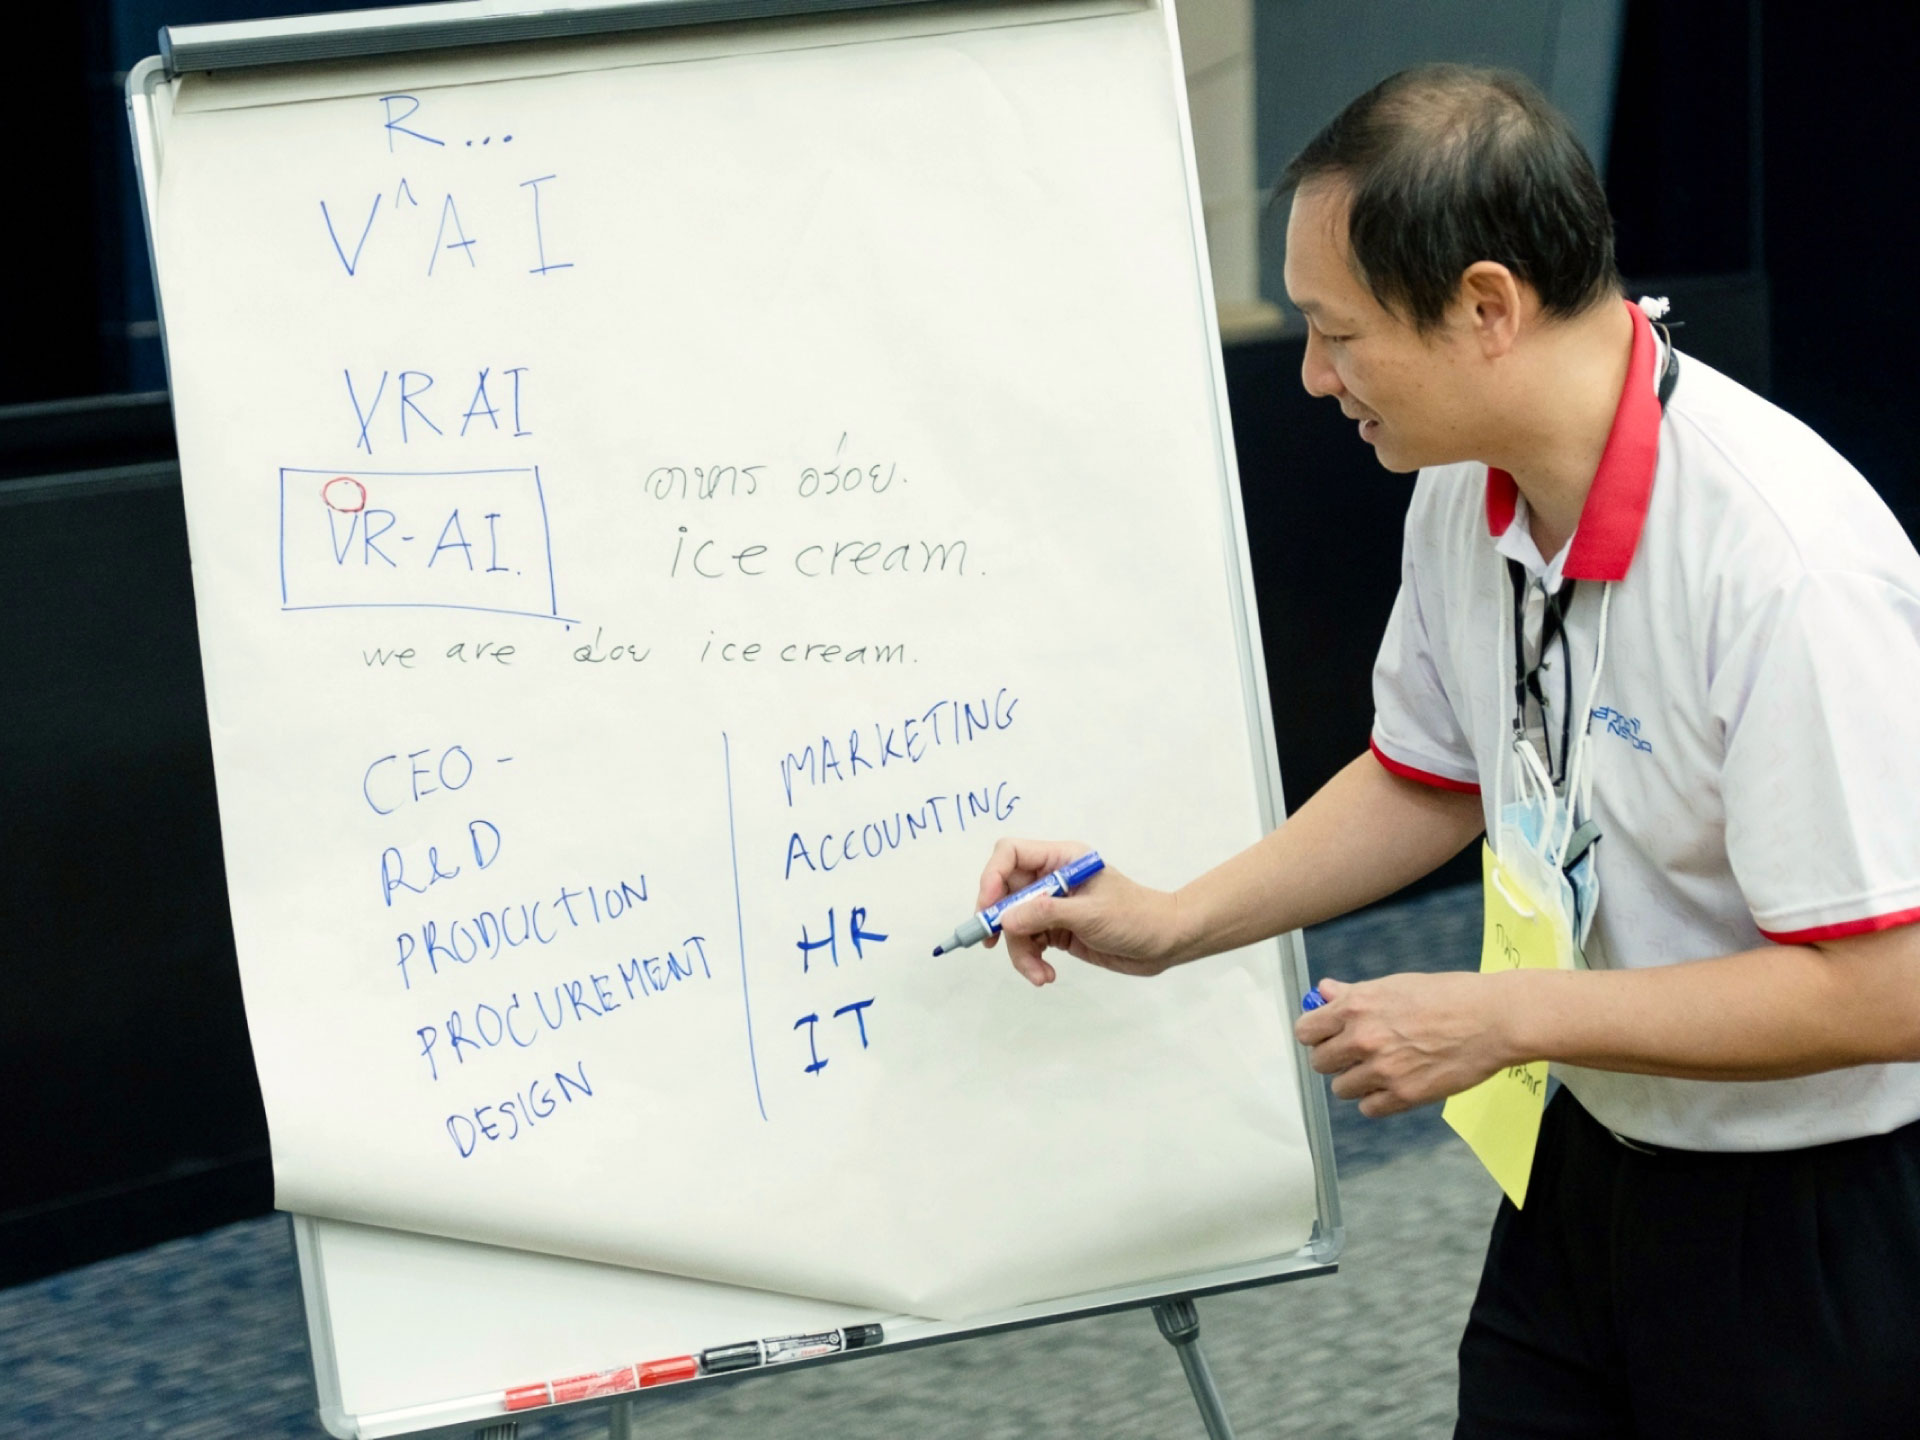 R...
V^AI
VRAI
VR-AI.
อาหาร อร่อย.
ice cream.
we are อ่อย ice cream.
CEO -
R&D
PRODUCTION
PROCUREMENT
DESIGN
MARKETING
ACCOUNTING
HR
IT